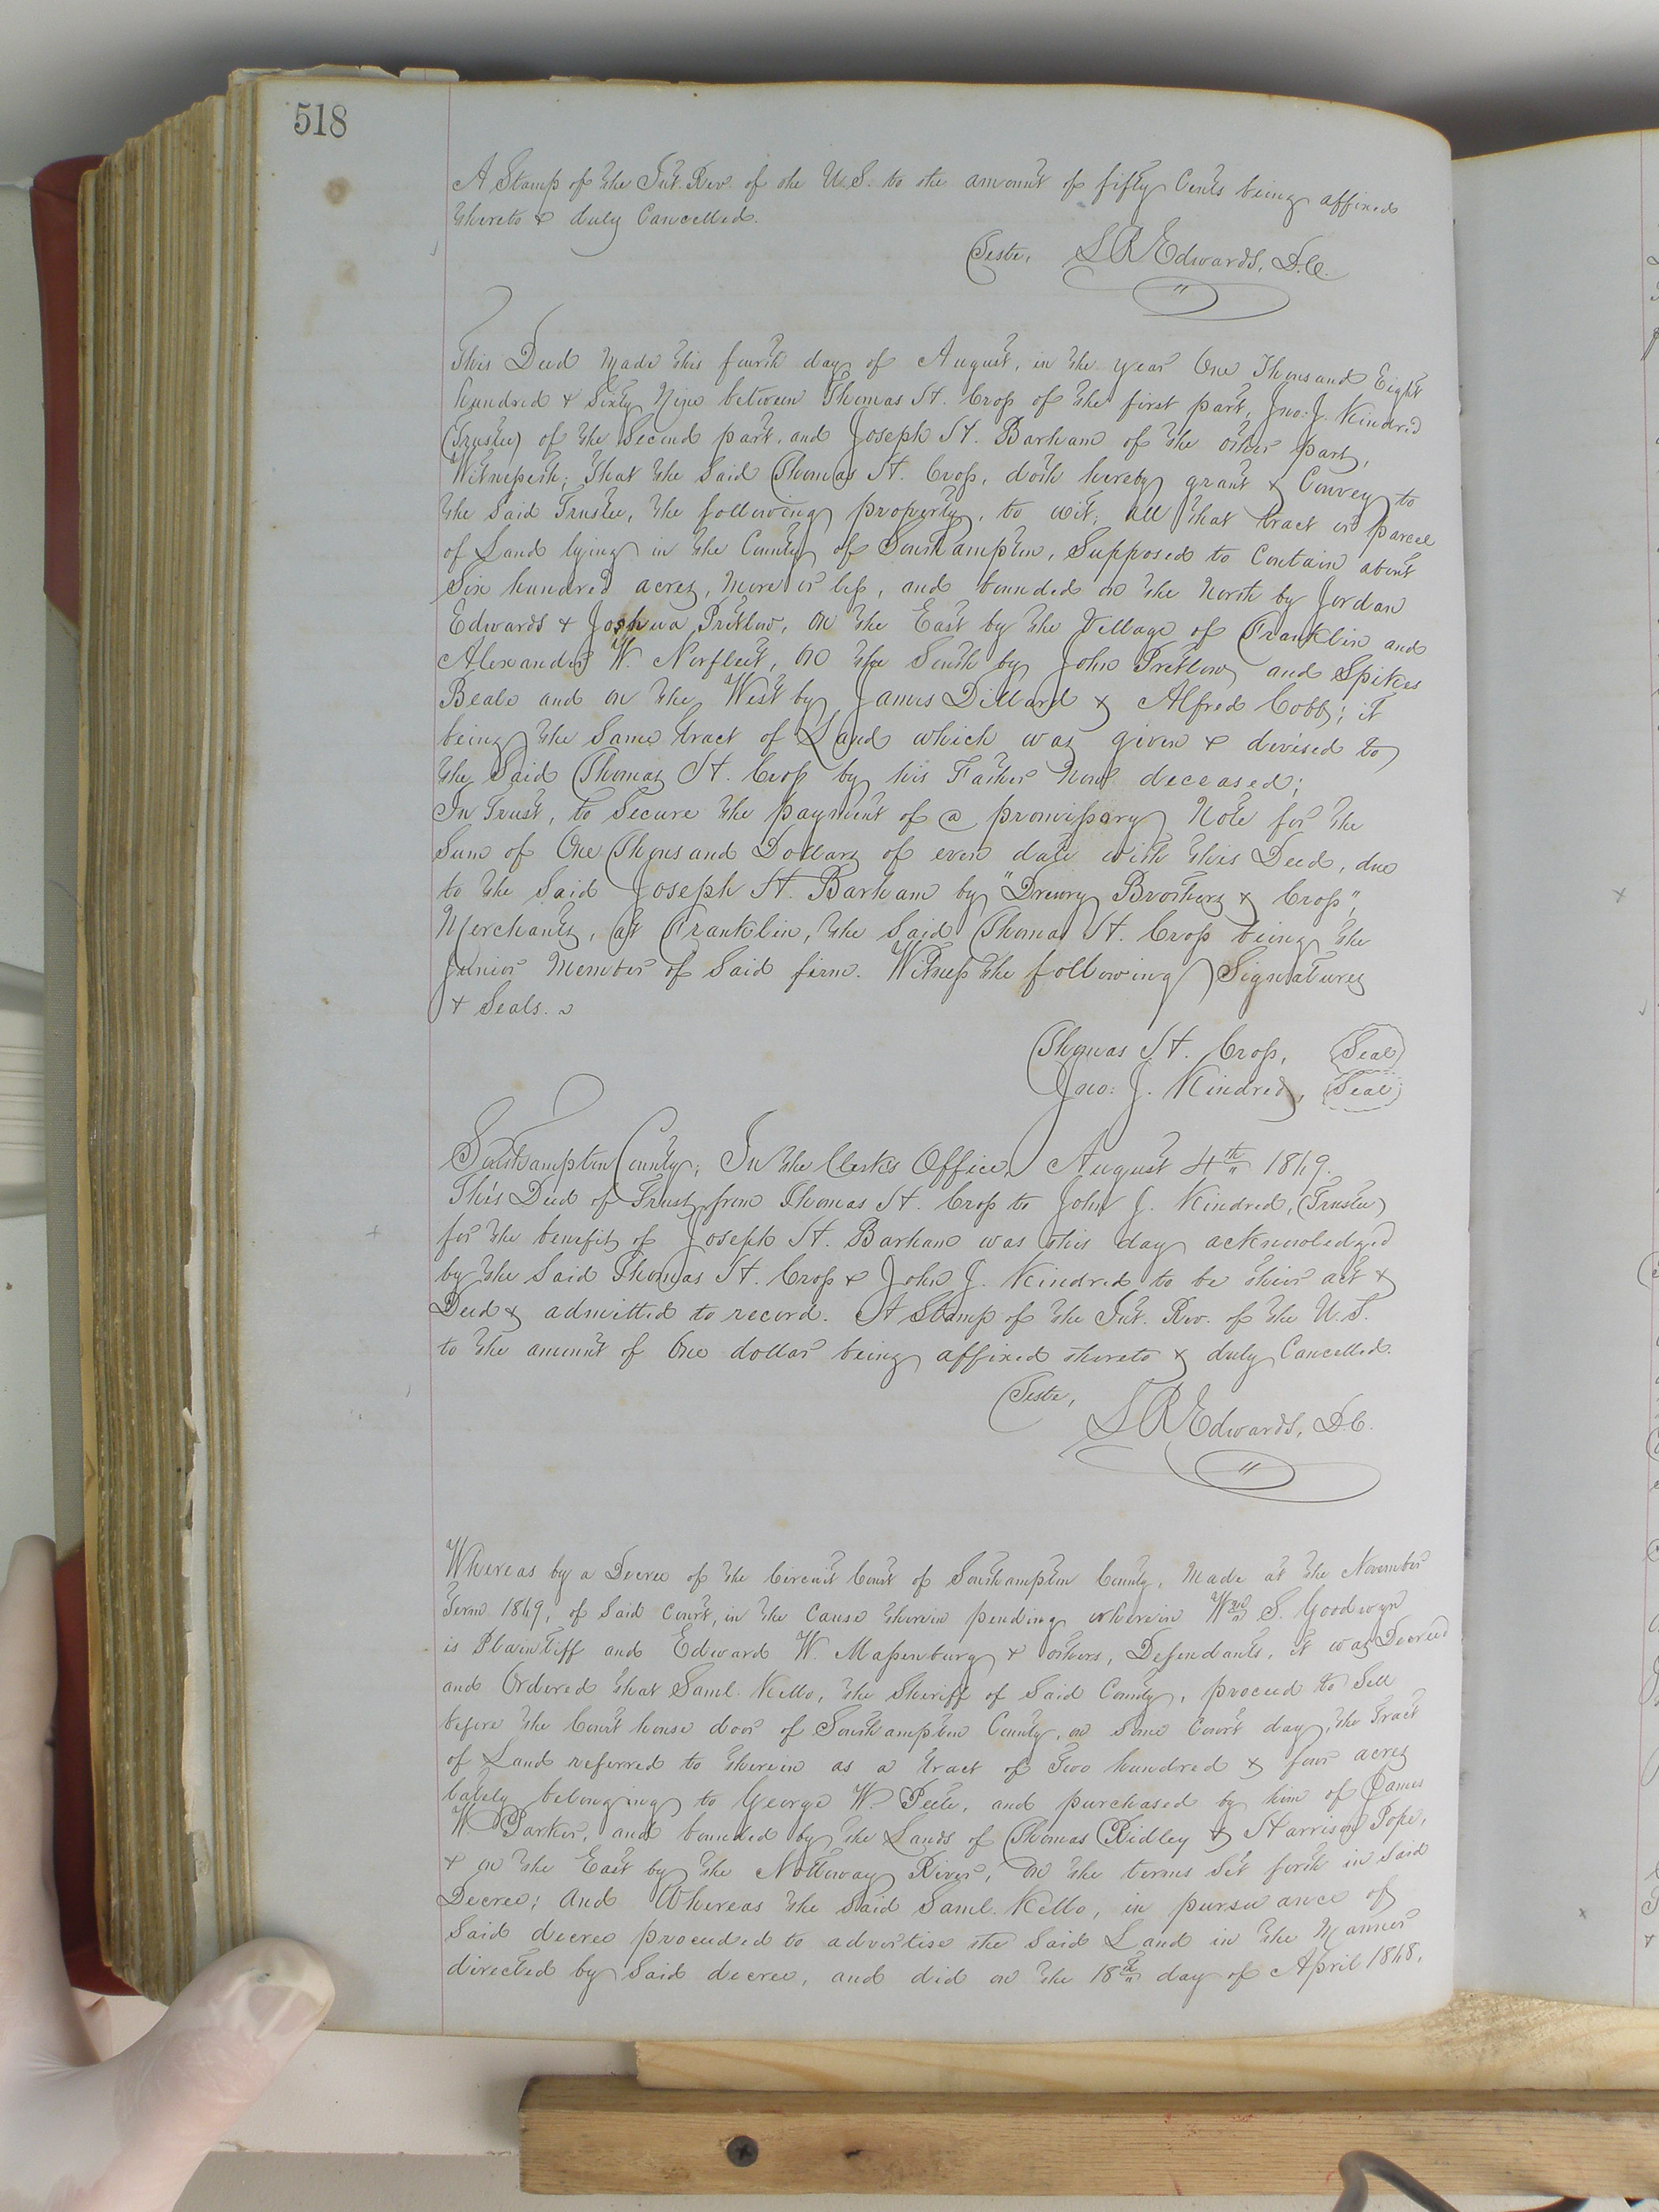 518
A Stamp of the Int. Rev. of the U.S. to the amount of fifty Cents being affixed
thereto & duly Cancelled.
Teste, L R Edwards, D.C.
This Deed Made this fourth day of August, in the year One Thousand Eight
hundred & Sixty Nine between Thomas H. Cross of the first part, Jno: J. Kindred
(Trustee) of the Second part, and Joseph H. Barham of the other part,
Witnesseth; That the Said Thomas H. Cross, doth hereby grant & Convey to
the Said Trustee, the following property, to wit; all that tract or parcel
of Land lying in the County of Southampton, Supposed to Contain about
Six hundred acres, More or less, and bounded on the North by Jordan
Edwards & Joshua Pretlow, on the East by the Village of Franklin and
Alexander W. Norfleet, on the South by John Pretlow and Spikes
Beale and on the West by James Dillard & Alfred Cobb; it
being the Same tract of Land which was given & devised to
the Said Thomas H. Cross by his Father Now deceased;
In Trust, to Secure the payment of a promissory Note for the
Sum of One Thousand Dollars of even date with this Deed, due
to the Said Joseph H. Barham by "Drewry Brothers & Cross",
Merchants, at Franklin, the Said Thomas H. Cross being the
Junior Member of Said firm. Witness the following Signatures
& Seals.
Thomas H. Cross, (Seal)
Jno: J. Kindred, (Seal)
Southampton County; In the Clerk's Office, August 4th 1869.
This Deed of Trust from Thomas H. Cross to John J. Kindred, (Trustee)
for the benefit of Joseph H. Barham was this day acknowledged
by the Said Thomas H. Cross & John J. Kindred to be their act &
Deed & admitted to record. A Stamp of the Int. Rev. of the U.S.
to the amount of One dollar being affixed thereto & duly Cancelled.
Teste,
L R Edwards, D.C.
Whereas by a Decree of the Circuit Court of Southampton County, Made at the November
Term 1869, of Said Court, in the Cause therein pending wherein Wm S. Goodwyn
is Plaintiff and Edward W. Massenburg & others, Defendants, it was Decreed
and Ordered that Saml. Kello, the Sheriff of Said County, proceed to Sell
before the Court house door of Southampton County, on Some Court day, the Tract
of Land referred to therein as a tract of Two hundred & four acres
lately belonging to George W. Peete, and purchased by him of James
W. Parker, and bounded by the Lands of Thomas Ridley & Harrison Pope,
& on the East by the Nottoway River, on the terms Set forth in Said
Decree; And Whereas the Said Saml. Kello, in pursuance of
Said decree proceeded to advertise the Said Land in the Manner
directed by Said decree, and did on the 18th day of April 1868,